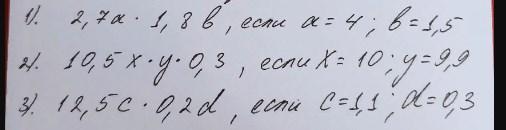 1). 2,7a · 1,8 b, если a = 4; b = 1,5
2). 10,5 x · y · 0,3, если X = 10; y = 9,9
3) 12,5c · 0,2d, если c = 1,1; d = 0,3